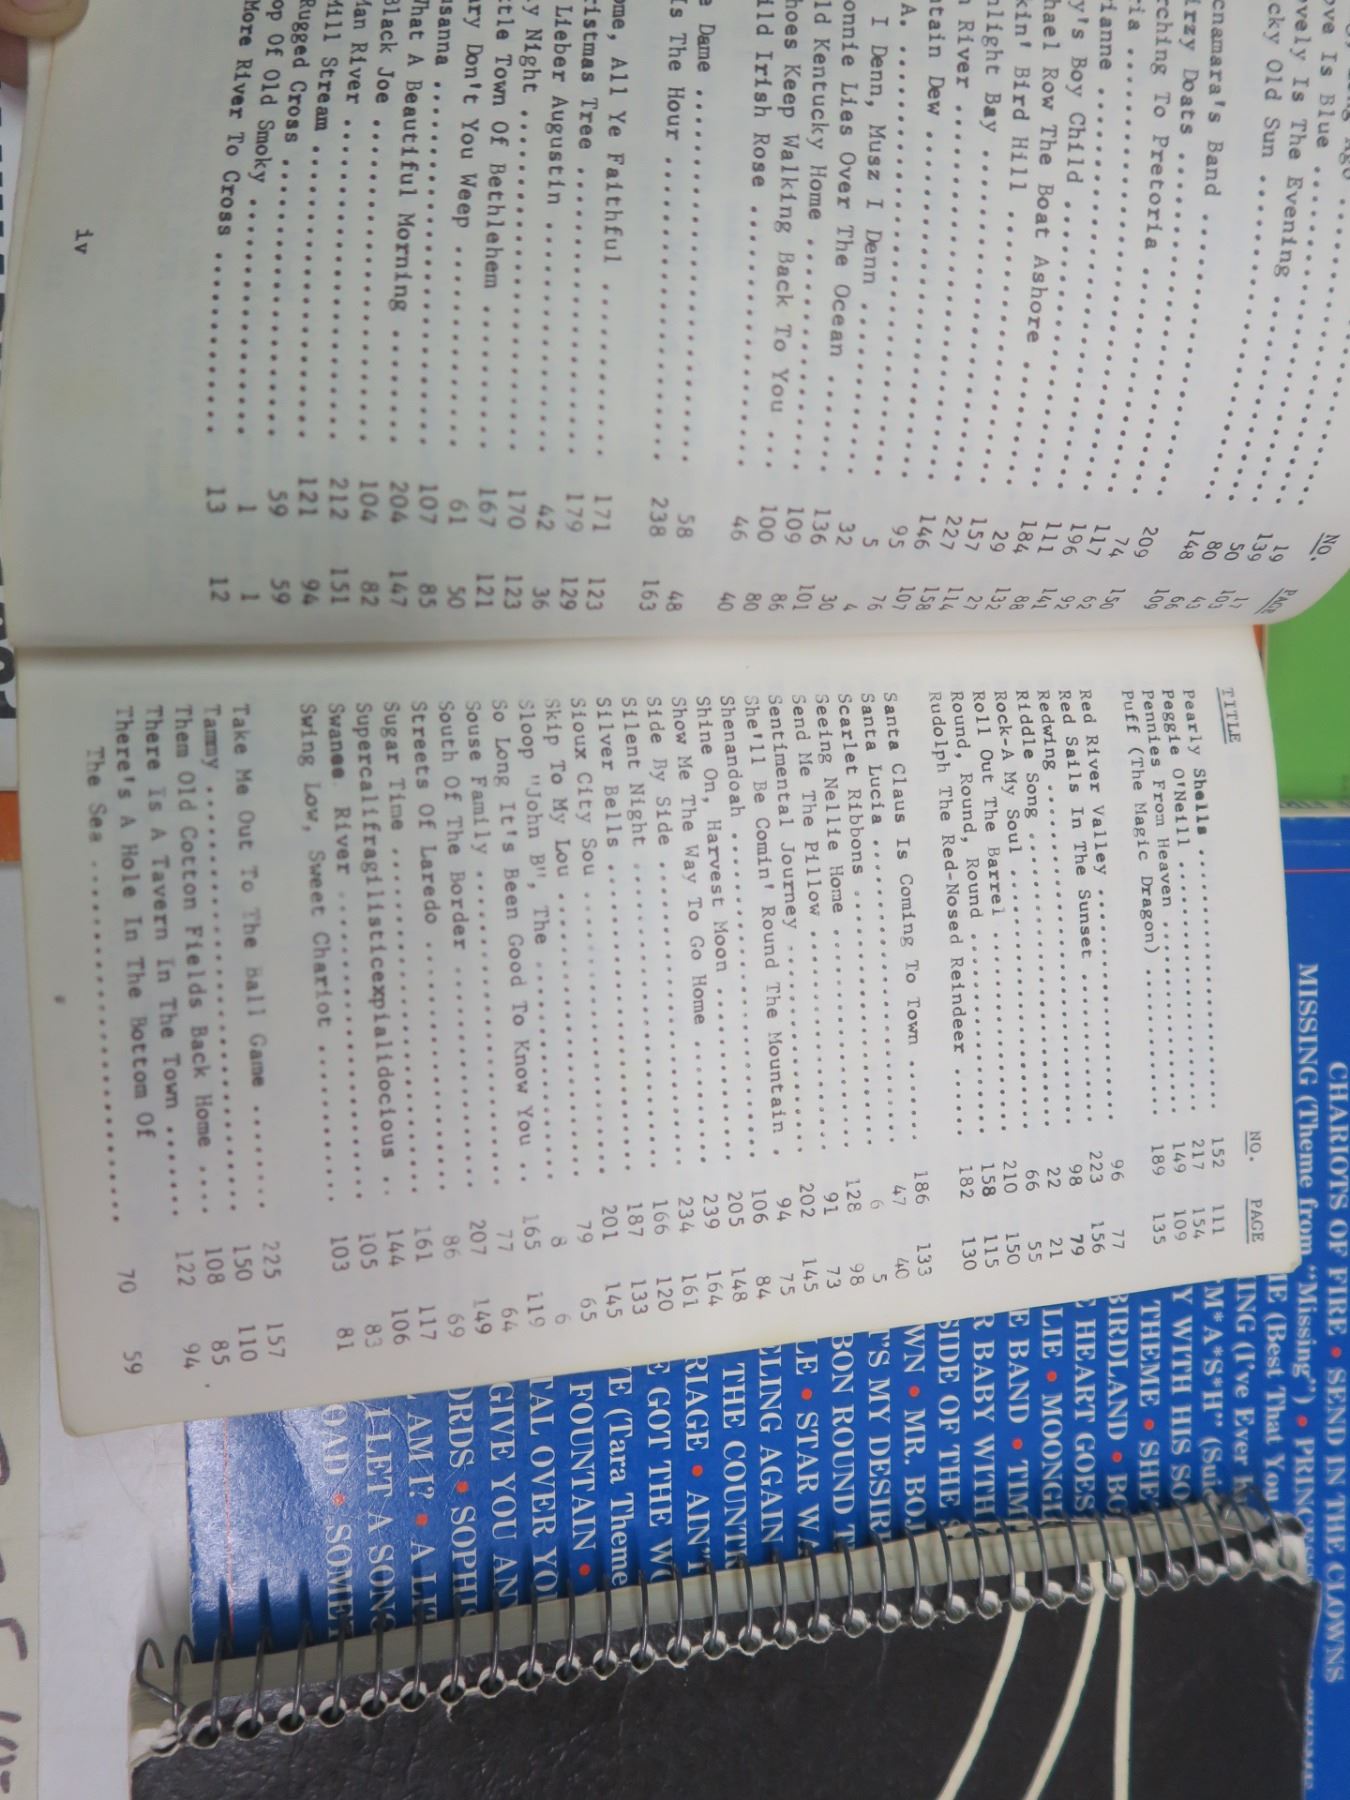 NO. PAGE
19 17
139 103
ove Is Blue 50 43
ovely Is The Evening 80 66
cky Old Sun 148 109
cnamara's Band 209 150
irzy Doats 74 62
rching To Pretoria 117 92
ria 196 141
rianne 111 88
y's Boy Child 184 132
hael Row The Boat Ashore 29 27
kin' Bird Hill 157 114
nlight Bay 227 158
n River 146 107
ntain Dew 95 76
A. 5 4
I Denn, Musz I Denn 32 30
onnie Lies Over The Ocean 136 101
ld Kentucky Home 109 86
hoes Keep Walking Back To You 100 80
ild Irish Rose 46 40
e Dame 58 48
Is The Hour 238 163
ome, All Ye Faithful 171 123
ristmas Tree 179 129
Lieber Augustin 42 36
y Night 170 123
ttle Town Of Bethlehem 167 121
ary Don't You Weep 61 50
usanna 107 85
What A Beautiful Morning 204 147
Black Joe 104 82
Man River 212 151
Mill Stream 121 94
Rugged Cross 59 59
op Of Old Smoky 1 1
More River To Cross 13 12
iv
TITLE NO. PAGE
Pearly Shells 152 111
Peggie O'Neill 217 154
Pennies From Heaven 149 109
Puff (The Magic Dragon) 189 135
Red River Valley 96 77
Red Sails In The Sunset 223 156
Redwing 98 79
Riddle Song 22 21
Rock-A My Soul 66 55
Roll Out The Barrel 210 150
Round, Round, Round 158 115
Rudolph The Red-Nosed Reindeer 182 130
Santa Claus Is Coming To Town 186 133
Santa Lucia 47 40
Scarlet Ribbons 6 5
Seeing Nellie Home 128 98
Send Me The Pillow 91 73
Sentimental Journey 202 145
She'll Be Comin' Round The Mountain 94 75
Shenandoah 106 84
Shine On, Harvest Moon 205 148
Show Me The Way To Go Home 239 164
Side By Side 234 161
Silent Night 166 120
Silver Bells 187 133
Sioux City Sou 201 145
Skip To My Lou 79 65
Sloop "John B", The 8 6
So Long It's Been Good To Know You 165 119
Souse Family 77 64
South Of The Border 207 149
Streets Of Laredo 86 69
Sugar Time 161 117
Supercalifragilisticexpialidocious 144 106
Swanee River 105 83
Swing Low, Sweet Chariot 103 81
Take Me Out To The Ball Game 225 157
Tammy 150 110
Them Old Cotton Fields Back Home 108 85
There Is A Tavern In The Town 122 94
There's A Hole In The Bottom Of
The Sea 70 59
CHARIOTS OF FIRE • SEND IN THE CLOWNS
MISSING (Theme from "Missing") • PRINCES
ME (Best That You
ING (I've Ever
M*A*S*H" (Sui
Y WITH HIS SO
THEME • SHE
BIRDLAND • BO
E HEART GOES
LIE • MOONG
E BAND • TIM
R BABY WITH
SIDE OF THE S
WN • MR. BOJ
T'S MY DESIR
BON ROUND T
LE • STAR WA
ELING AGAIN
THE COUNT
RIAGE • AIN'T
E GOT THE WO
E (Tara Theme
FOUNTAIN •
TAL OVER YO
GIVE YOU AN
ORDS • SOPHIS
L AM I? • A LIT
I LET A SONG
OAD • SOMET